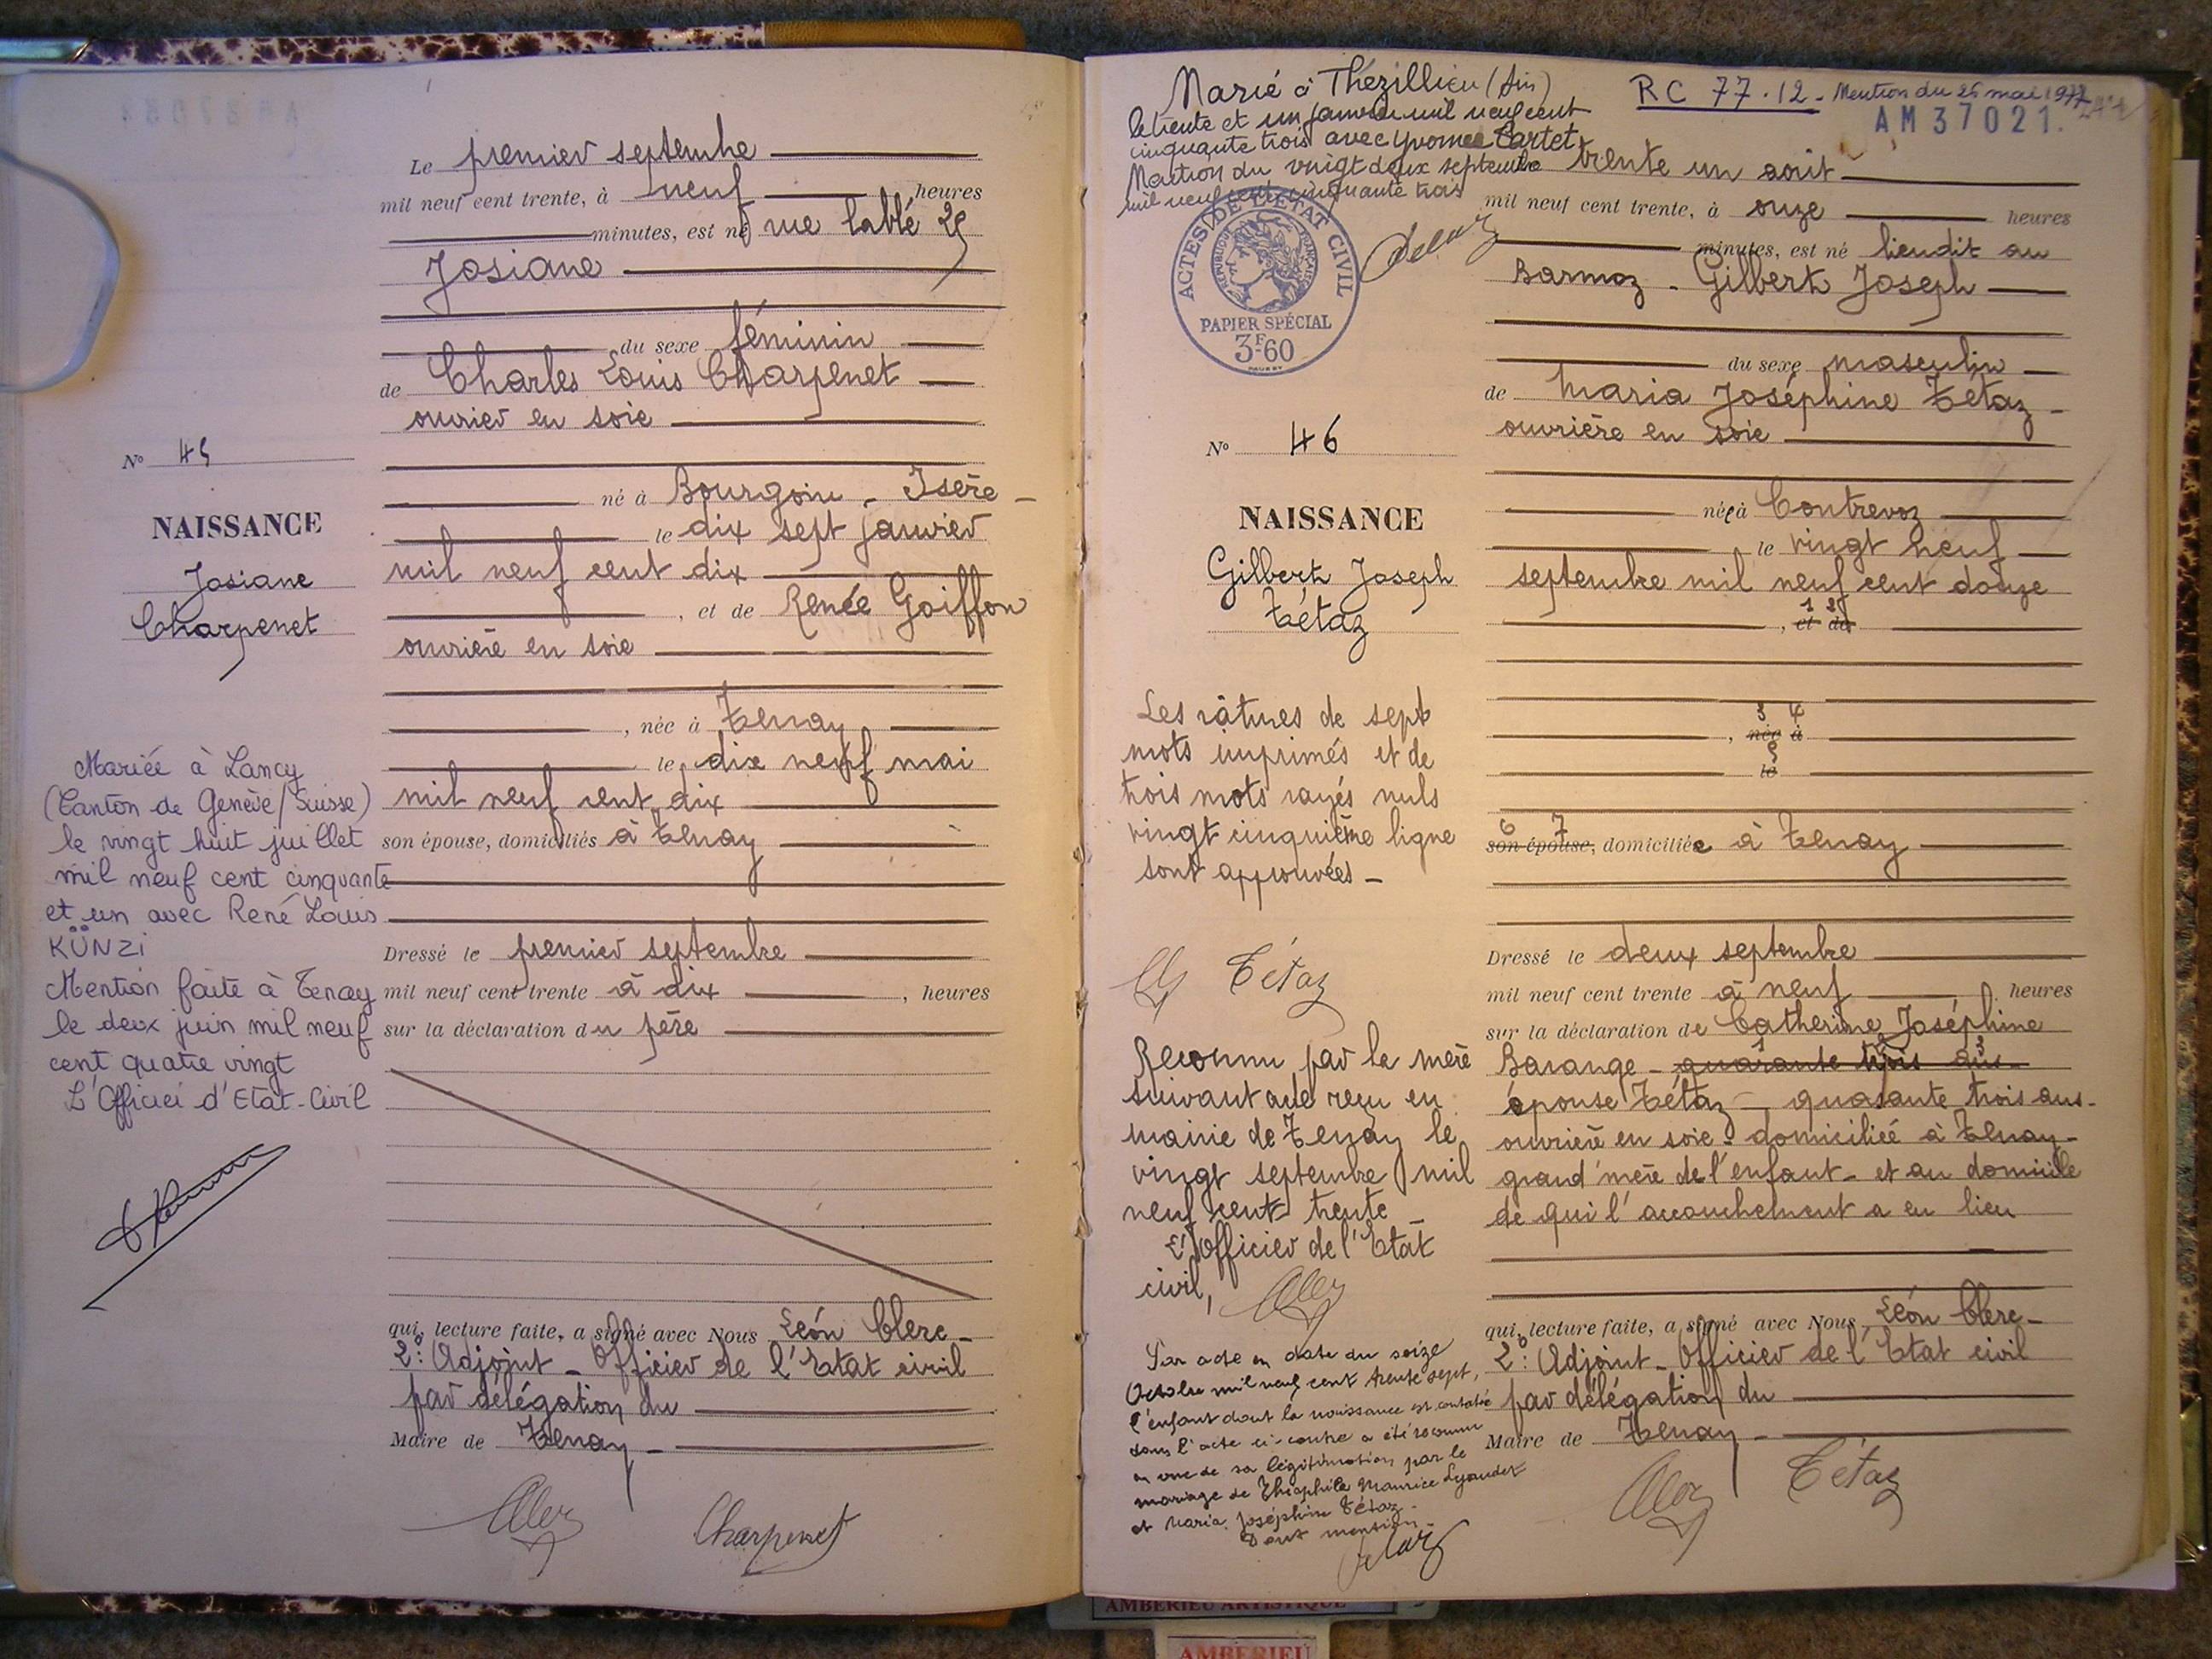 Le premier septembre
mil neuf cent trente, à neuf heures
minutes, est né rue Lablé 25
Josiane
du sexe féminin
de Charles Louis Charpenet
ouvrier en soie
né à Bourgoin - Isère -
le dix sept janvier
mil neuf cent dix
, et de Renée Goiffon
ouvrière en soie
, née à Tenay
le dix neuf mai
mil neuf cent dix
son épouse, domiciliés à Tenay
Dressé le premier septembre
mil neuf cent trente à dix , heures
sur la déclaration du père
qui, lecture faite, a signé avec Nous Léon Clerc -
2e Adjoint - Officier de l'Etat civil
par délégation du
Maire de Tenay -
Charpenet
No 45
NAISSANCE
Josiane
Charpenet
Mariée à Lancy
(Canton de Genève/Suisse)
le vingt huit juillet
mil neuf cent cinquante
et un avec René Louis
KÜNZI
Mention faite à Tenay
le deux juin mil neuf
cent quatre vingt
L'Officier d'Etat-Civil
Marié à Thézillieu (Ain)
le trente et un janvier mil neuf cent
cinquante trois avec Yvonne Cartet
Mention du vingt deux septembre
mil neuf cent cinquante trois
RC 77.12 - Mention du 26 mai 1977
AM37021.
ACTES DE L'ETAT CIVIL
REPUBLIQUE FRANÇAISE
PAPIER SPÉCIAL
3F60
No 46
NAISSANCE
Gilbert Joseph
Tétaz
Les ratures de sept
mots imprimés et de
trois mots rayés nuls
vingt cinquième ligne
sont approuvées -
Tétaz
Reconnu par la mère
suivant acte reçu en
mairie de Tenay le
vingt septembre mil
neuf cent trente -
L'Officier de l'Etat
civil,
Par acte en date du seize
Octobre mil neuf cent trente sept,
l'enfant dont la naissance est constatée
dans l'acte ci-contre a été reconnu
en vue de sa légitimation par le
mariage de Théophile Maurice Lyaudet
et Maria Joséphine Tétaz -
Dont mention -
trente un août
mil neuf cent trente, à onze heures
minutes, est né lieudit au
Barmoz - Gilbert Joseph
du sexe masculin
de Maria Joséphine Tétaz -
ouvrière en soie
née à Contrevoz
le vingt neuf
septembre mil neuf cent douze
1 2
, et de
3 4
, née à
5
le
6 7
son épouse, domiciliée à Tenay
Dressé le deux septembre
mil neuf cent trente à neuf , heures
sur la déclaration de Catherine Joséphine
Barange - quarante trois ans -
épouse Tétaz - quarante trois ans -
ouvrière en soie - domiciliée à Tenay -
grand'mère de l'enfant - et au domicile
de qui l'accouchement a eu lieu
qui, lecture faite, a signé avec Nous Léon Clerc -
2e Adjoint - Officier de l'Etat civil
par délégation du
Maire de Tenay -
Tétaz
AMBERIEU ARTISTIQUE
AMBERIEU